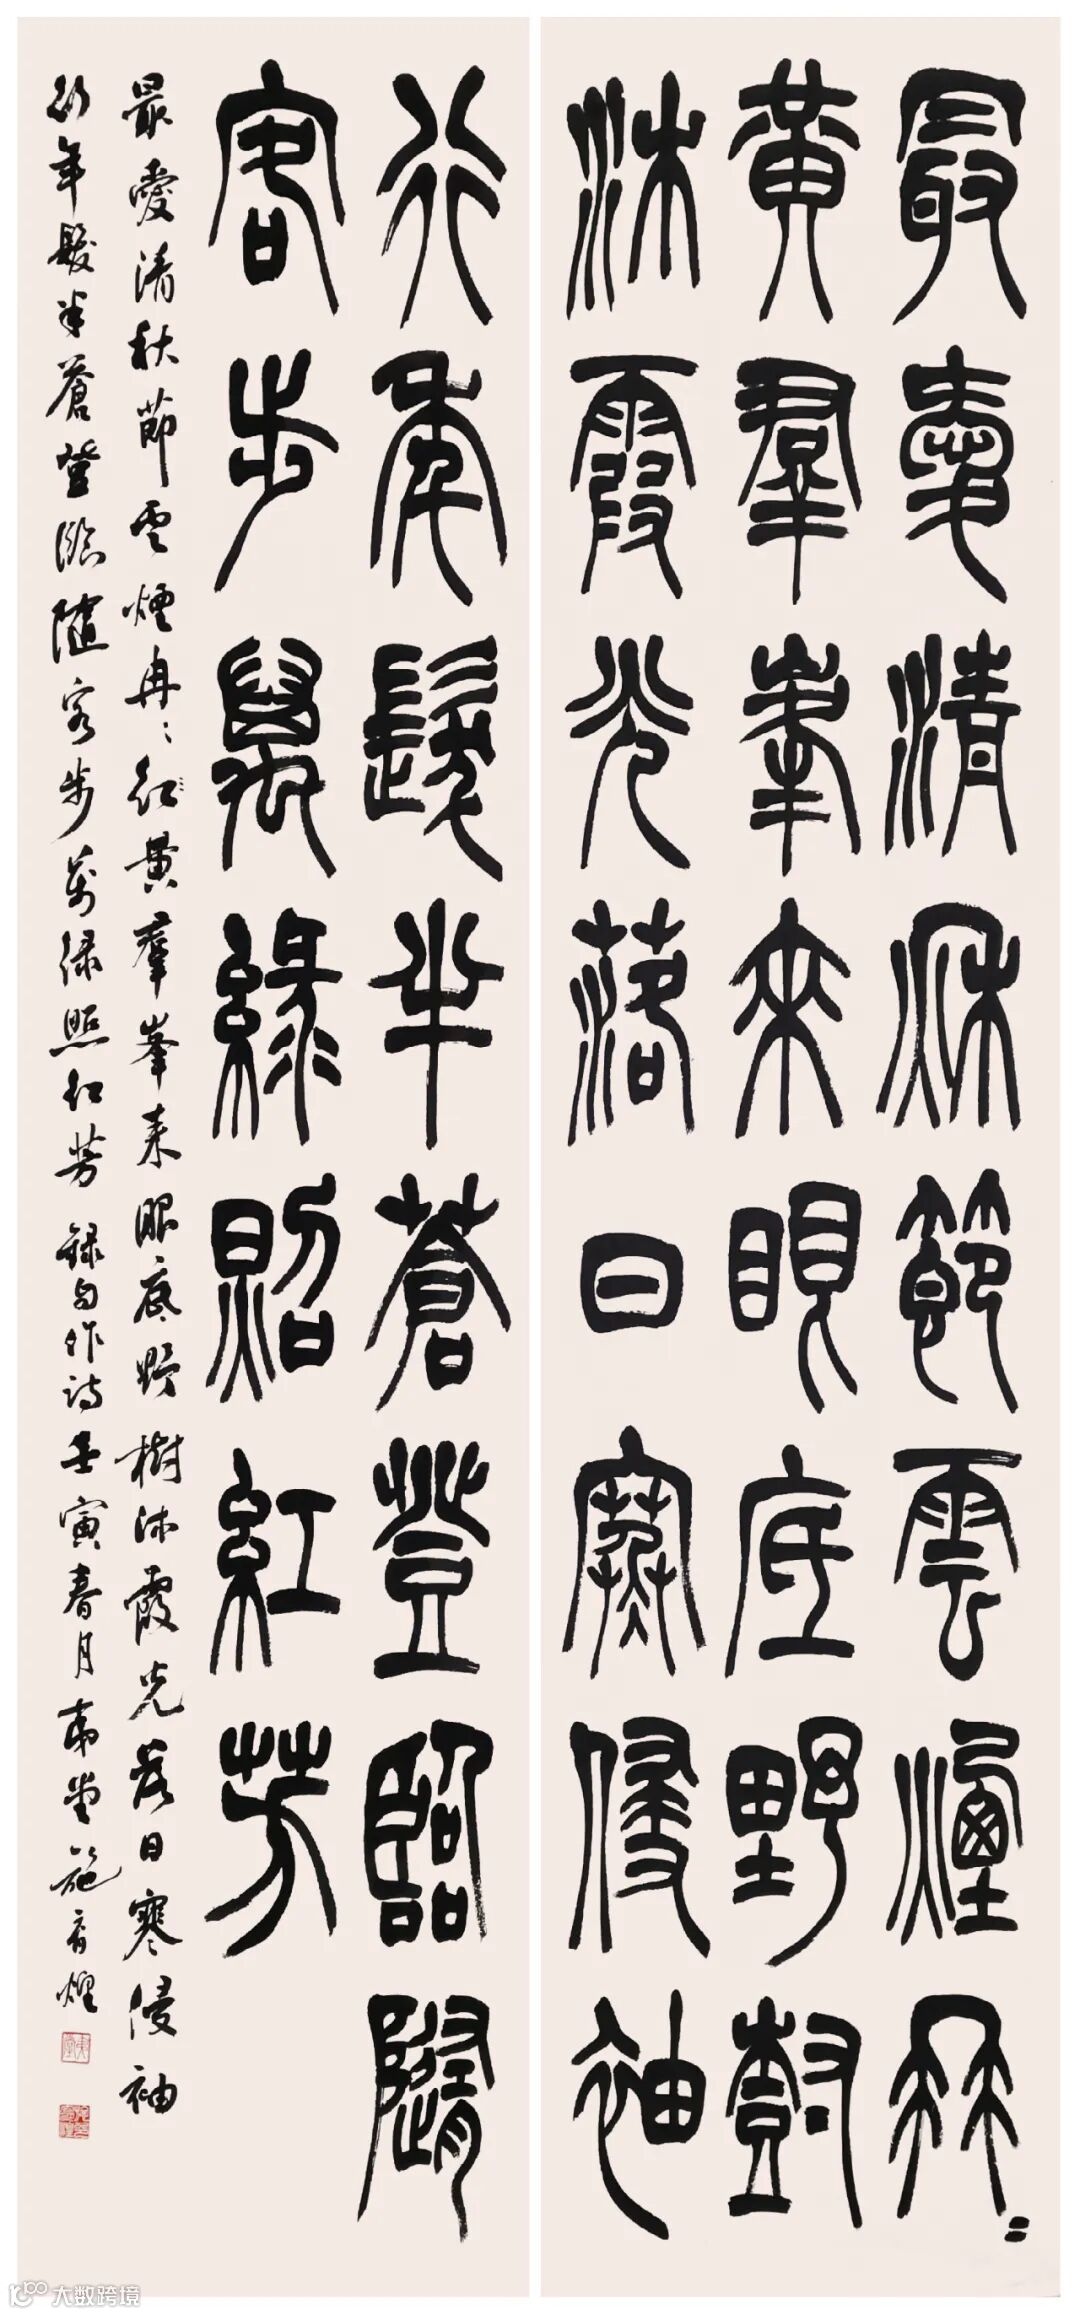 最愛清秋節雲煙冉〻
黃羣峯來眼底野樹
沐霞光落日寒侵袖
行年髮半蒼登臨隨
客步萬綠照紅芳
最愛清秋節雲煙冉〻紅黃羣峯來眼底野樹沐霞光落日寒侵袖
行年髮半蒼登臨隨客步萬綠照紅芳 錄自作詩壬寅春月堂施育煌
大数跨境